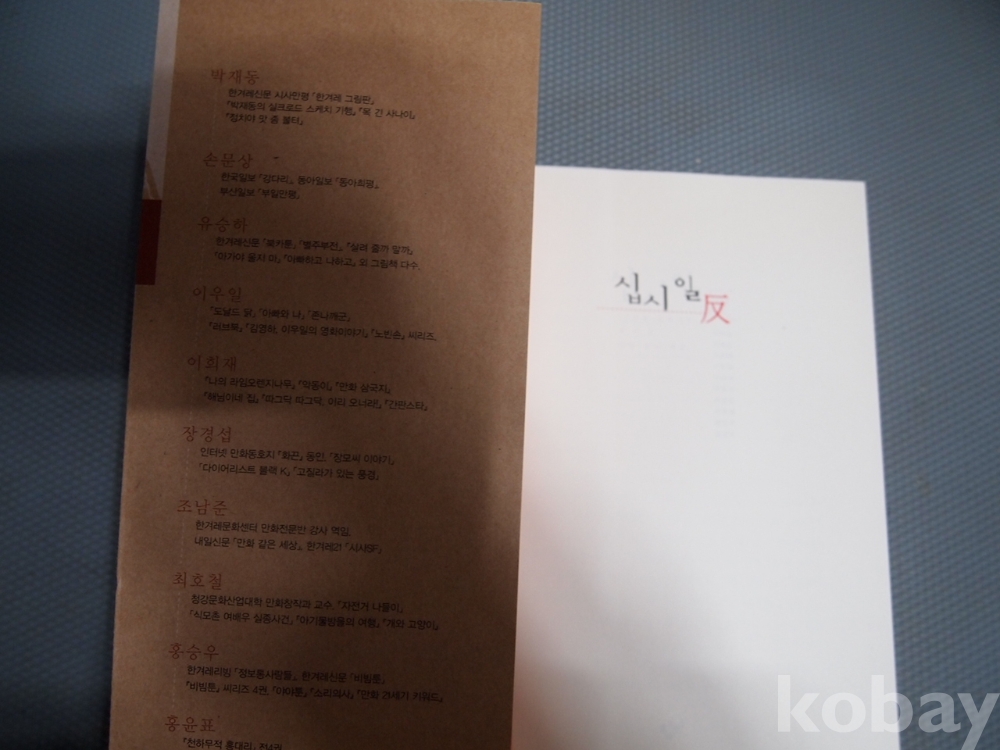 박재동
한겨레신문 시사만평 「한겨레 그림판」
『박재동의 실크로드 스케치 기행』 『목 긴 사나이』
『정치야 맛 좀 볼터』
손문상
한국일보 「강다리」, 동아일보 「동아희평」
부산일보 「부일만평」
유승하
한겨레신문 「북카툰」 『뻘주부전』 『살려 줄까 말까』
『아가야 울지 마』 『아빠하고 나하고』 외 그림책 다수
이우일
『도날드 닭』 『아빠와 나』 『존나깨군』
『러브북』 『김영하, 이우일의 영화이야기』 『노빈손』 씨리즈
이희재
『나의 라임오렌지나무』 『악동이』 『만화 삼국지』
『해님이네 집』 『따그닥 따그닥, 이리 오너라!』 『간판스타』
장경섭
인터넷 만화동호지 「화끈」 동인, 「장모씨 이야기」
「다이어리스트 블랙 K」 「고질라가 있는 풍경」
조남준
한겨레문화센터 만화전문반 강사 역임
내일신문 「만화 같은 세상」, 한겨레21 「시사SF」
최호철
청강문화산업대학 만화창작과 교수, 「자전거 나들이」
「식모촌 여배우 실종사건」 「아기물방울의 여행」 『개와 고양이』
홍승우
한겨레리빙 「정보통사람들」, 한겨레신문 「비빔툰」
『비빔툰』 씨리즈 4권, 『야야툰』 『소리의사』 『만화 21세기 키워드』
홍윤표
『천하무적 홍대리』 전4권
십시일反
kobay